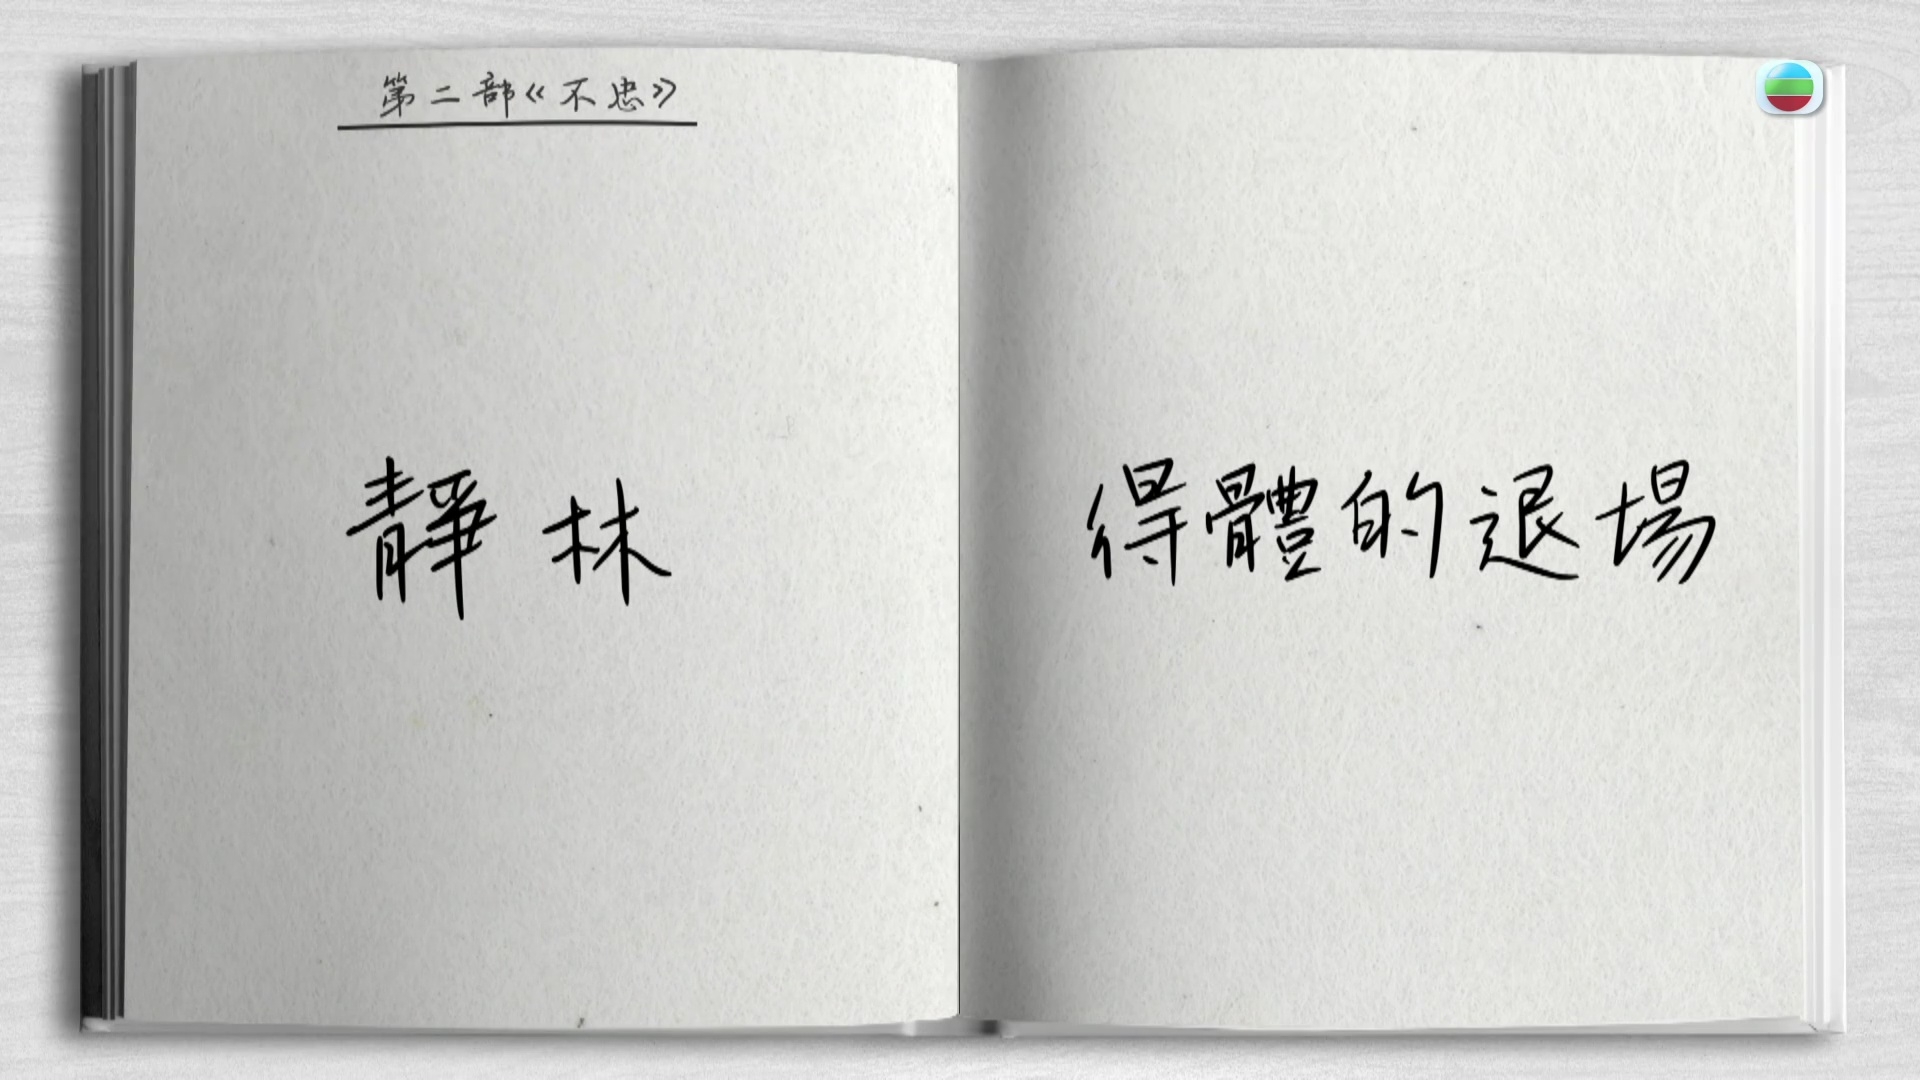 第二部《不忠》
靜林
得體的退場